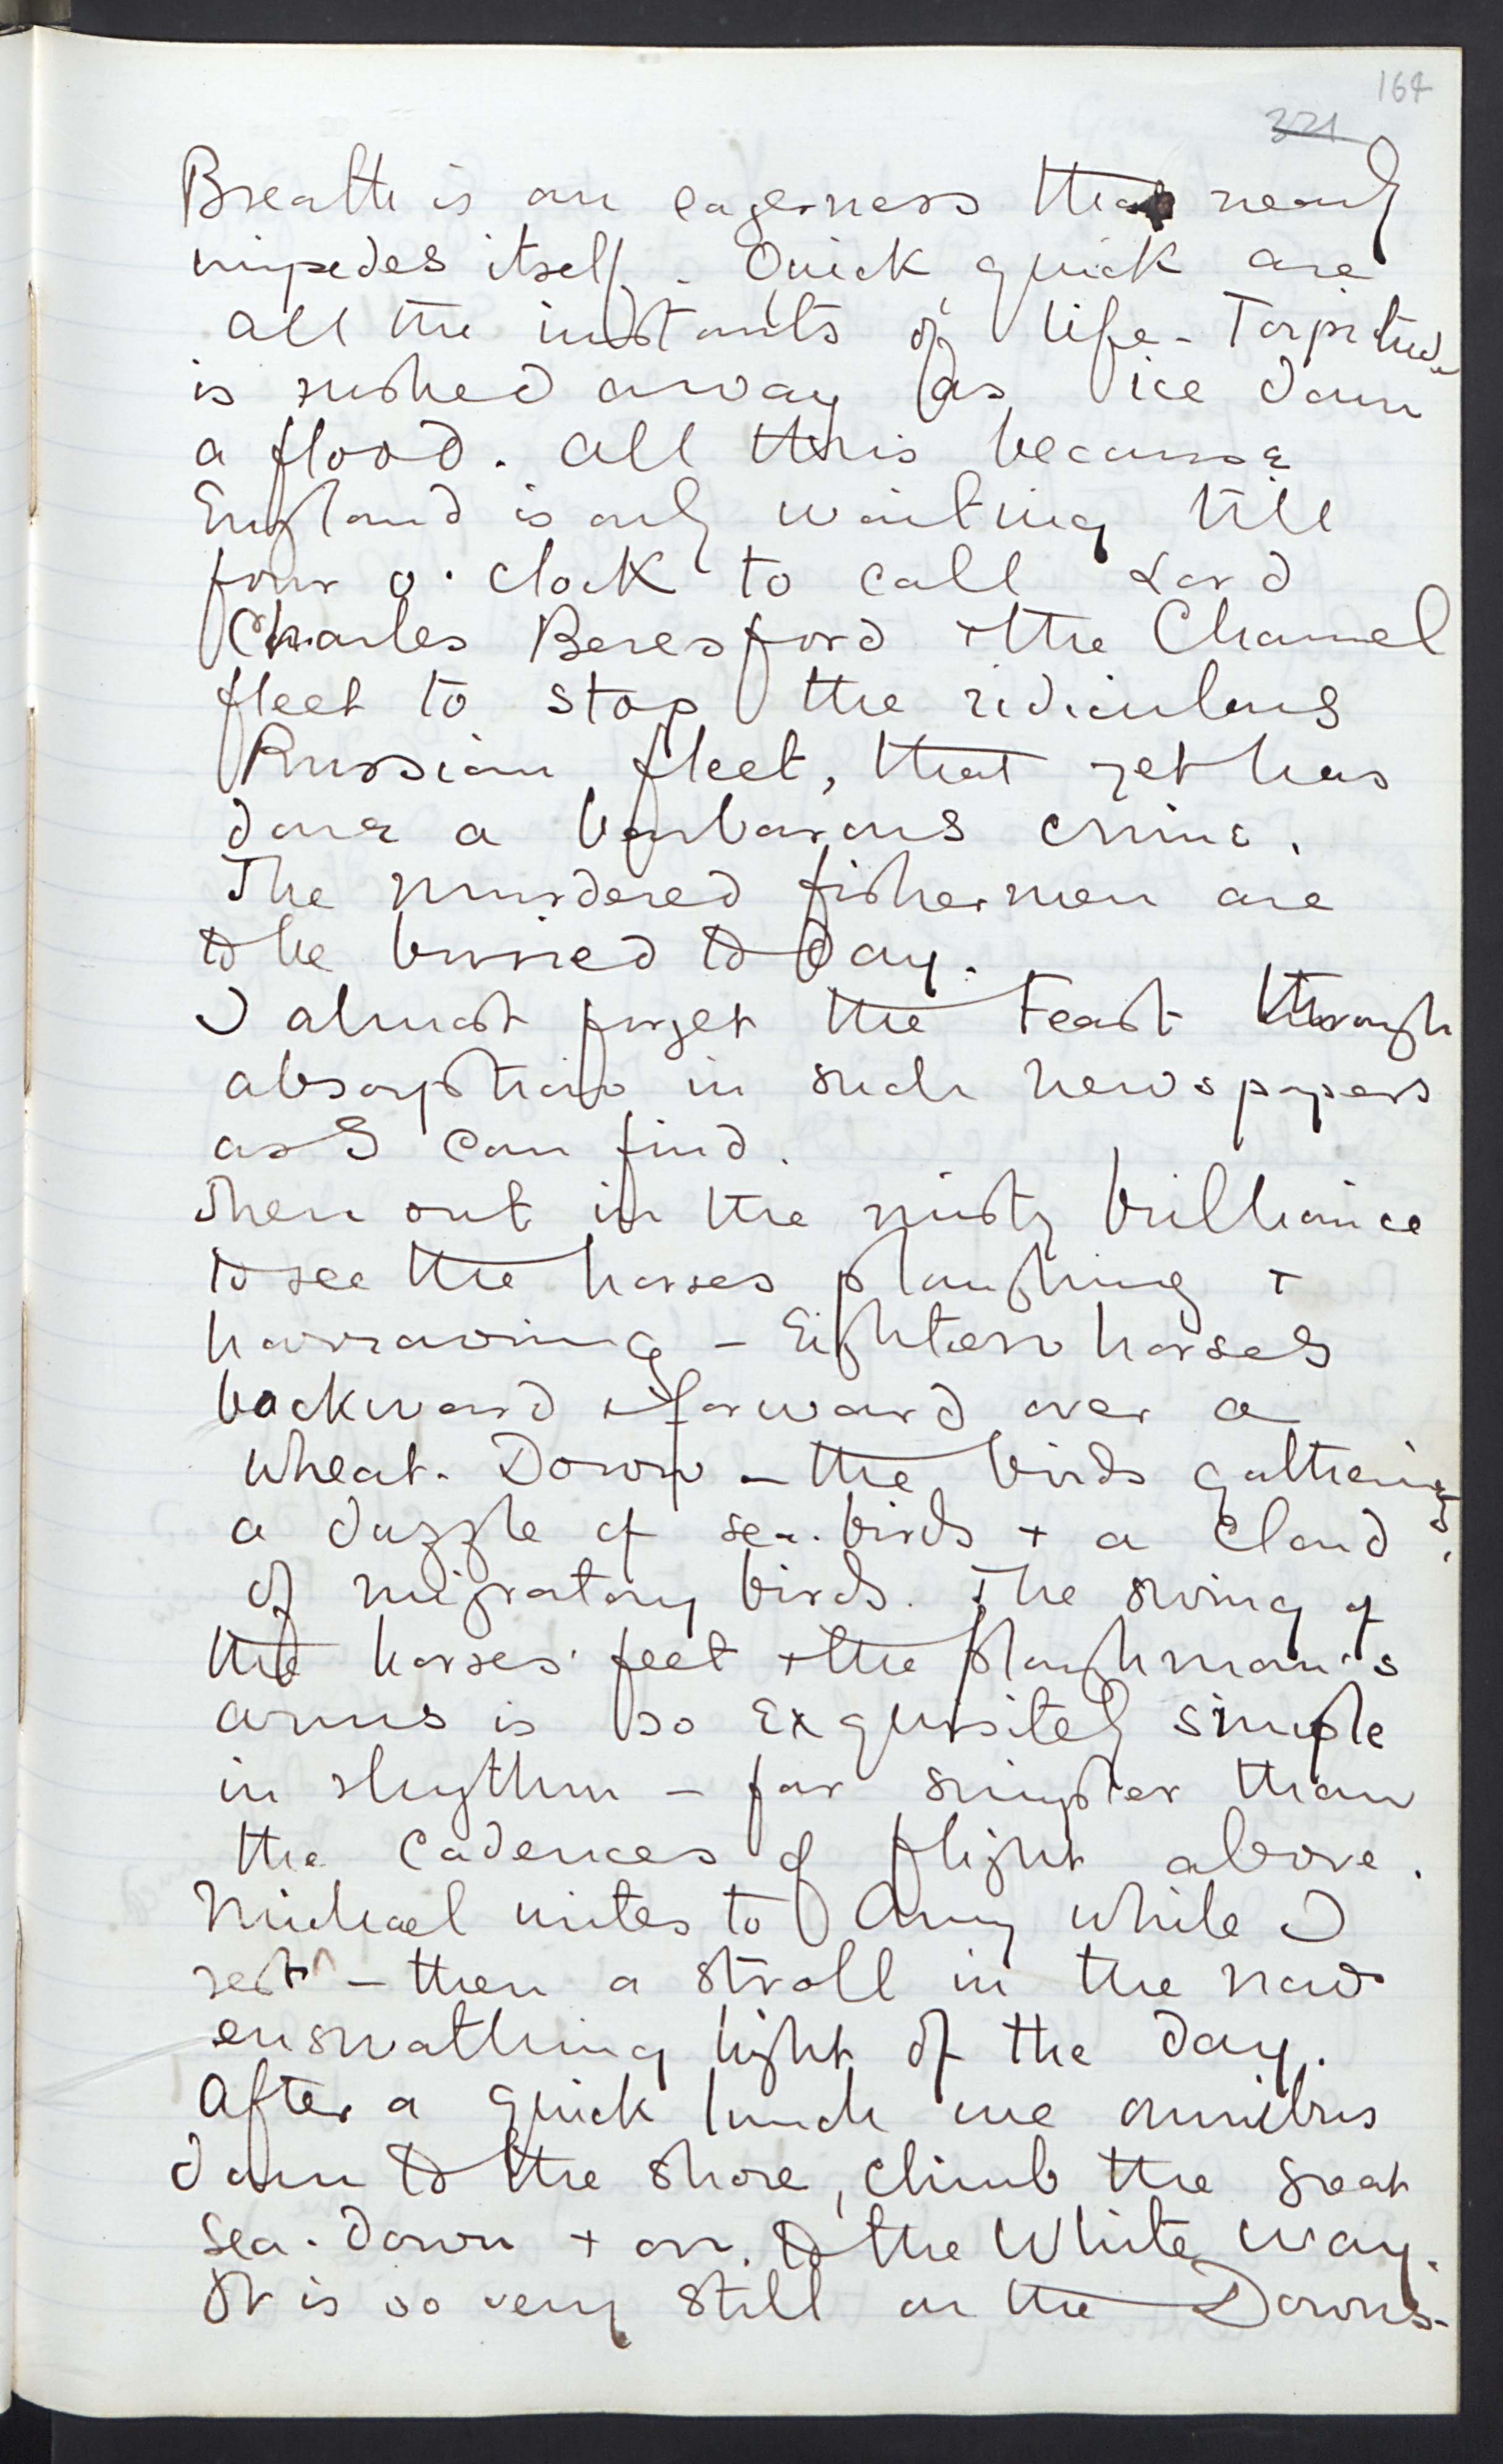 164
321
Breath is an eagerness that nearly
impedes itself. Quick, quick are
all the instants of life - Torpitude
is rushed away as ice down
a flood. All this because
England is only waiting till
four o'clock to call Lord
Charles Beresford & the Channel
fleet to stop the ridiculous
Russian fleet, that yet has
done a barbarous crime.
The murdered fishermen are
to be buried to day.
I almost forget the Feast through
absorption in such newspapers
as I can find.
Then out in the misty brilliance
to see the horses ploughing +
harrowing - Eighteen horses
backward & forward over a
wheat-Down - the birds gathering,
a dazzle of sea-birds + a cloud
of migratory birds. The swing of
the horses' feet + the ploughman's
arms is so exquisitely simple
in rhythm - far simpler than
the cadences of flight above.
Michael writes to Amy while I
rest - then a stroll in the now
enswathing light of the day.
After a quick lunch we omnibus
down to the shore, climb the great
sea-down + on to the White Way.
It is so very still on the Downs-